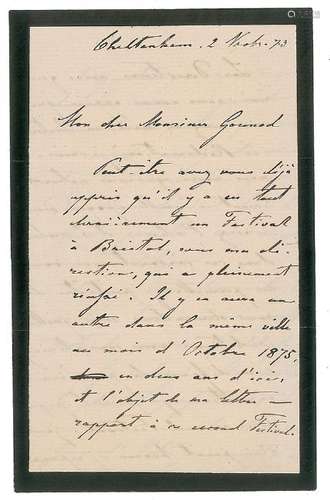 Cheltenham, 2 Nobr. 73
Mon cher Monsieur Gounod
Peut-être avez vous déjà
appris qu'il y a eu tout
dernièrement un Festival
à Bristol, sous ma di-
rection, qui a pleinement
réussi. Il y en aura un
autre dans la même ville
au mois d'Octobre 1875,
en deux ans d'ici,
et l'objet de ma lettre a
rapport à ce second Festival.